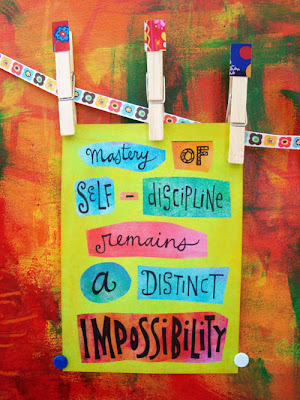 mastery OF
SELF - discipline
remains
a DISTINCT
IMPOSSIBILITY